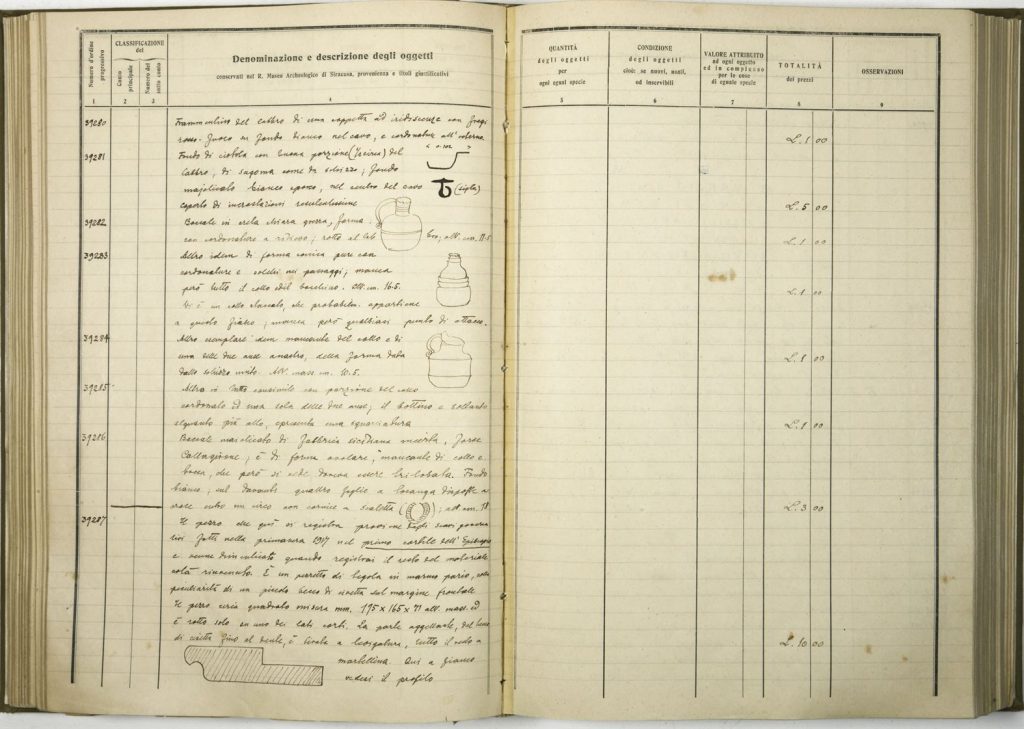 Numero d'ordine progressivo
CLASSIFICAZIONE del
Conto principale
Numero del sotto conto
Denominazione e descrizione degli oggetti
conservati nel R. Museo Archeologico di Siracusa, provenienza e titoli giustificativi
1 2 3 4
39280 Frammentino del labbro di una coppetta ad iridescenze con fregi
rosso fuoco su fondo bianco nel cavo, e cordonature all'esterno
39281 Fondo di ciotola con buona porzione del
labbro, di sagoma come da schizzo; fondo
majolicato bianco sporco, nel centro del cavo (sigla)
coperto di incrostazioni
39282 Boccale in creta chiara grezza, forma
con cordonature a rilievo; rotto al lab bro, alt. cm. 17.5
39283 Altro idem di forma conica pure con
cordonature e solchi nei passaggi; manca
però tutto il collo ed il bocchino. Alt. cm. 16.5.
Vi è un collo staccato, che probabilm. appartiene
a questo fiasco, manca però qualsiasi punto di attacco.
39284 Altro esemplare idem mancante del collo e di
una delle due anse a nastro, della forma data
dallo schizzo unito. Alt. mass. cm. 10.5.
39285 Altro in tutto consimile con porzione del collo
cordonato ed una sola delle due anse; il bottino è soltanto
alquanto più alto, e presenta una squarciatura
39286 Boccale maiolicato di fabbrica siciliana incerta, forse
Caltagirone; è di forma ovolare, mancante di collo e
bocca, che però si vede doveva essere trilobata. Fondo
bianco, sul davanti quattro foglie a losanga disposte a
croce entro un circo con cornice a scaletta; alt. cm. 18
39287 Il pezzo che qui si registra proviene dagli scavi governa
tivi fatti nella primavera 1917 nel primo cortile dell'Episcopio
e venne dimenticato quando registrai il resto del materiale
colà rinvenuto. È un pezzetto di tegola in marmo pario, colla
peculiarità di un piccolo becco di civetta sul margine frontale
Il pezzo circa quadrato misura mm. 175 x 165 x 71 alt. mass. ed
è rotto solo su uno dei lati corti. La parte aggettante, dal becco
di civetta fino al dente, è levata a levigatura, tutto il resto a
martellina. Qui a fianco
vedesi il profilo
QUANTITÀ degli oggetti per ogni egual specie
CONDIZIONE degli oggetti cioè: se nuovi, usati, od inservibili
VALORE ATTRIBUITO ad ogni oggetto ed in complesso per le cose di eguale specie
TOTALITÀ dei prezzi
OSSERVAZIONI
5 6 7 8 9
L. 1 00
L. 5 00
L. 1 00
L. 1 00
L. 1 00
L. 1 00
L. 3 00
L. 10 00